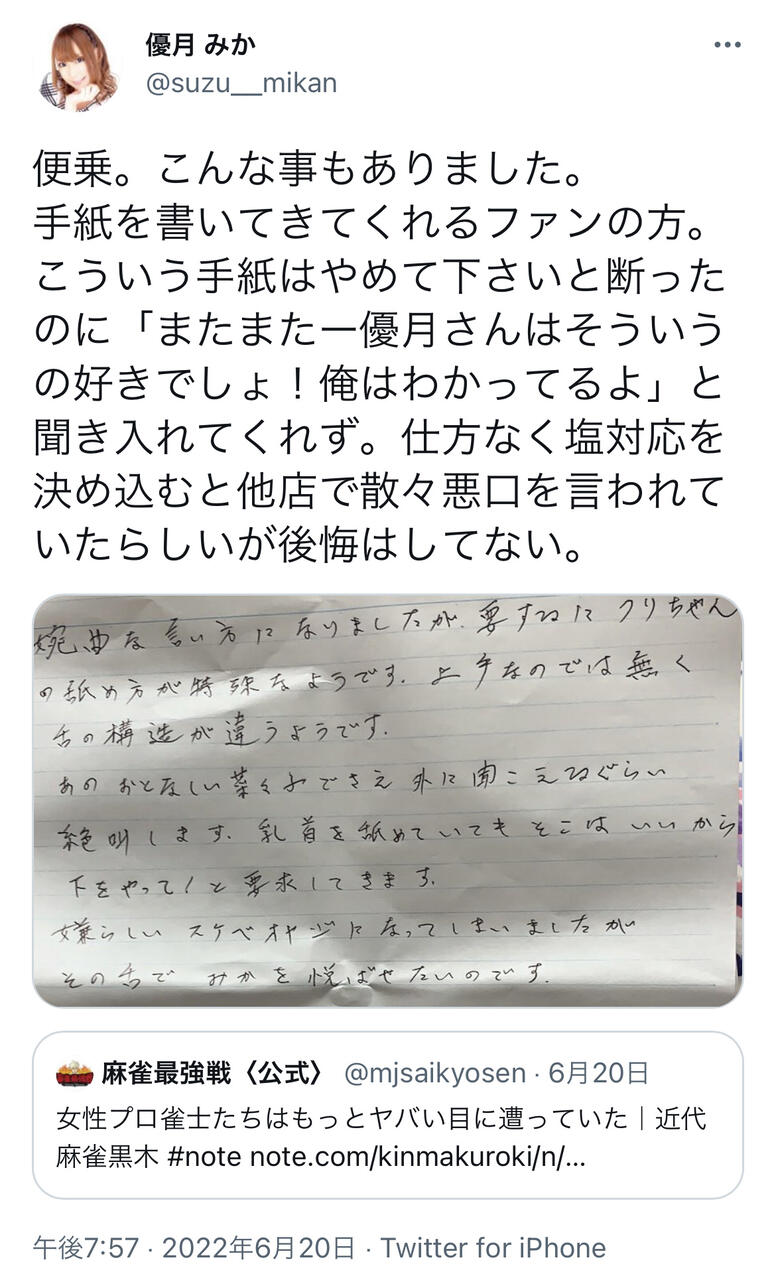 優月 みか
@suzu__mikan
便乗。こんな事もありました。
手紙を書いてきてくれるファンの方。
こういう手紙はやめて下さいと断った
のに「またまたー優月さんはそういう
の好きでしょ！俺はわかってるよ」と
聞き入れてくれず。仕方なく塩対応を
決め込むと他店で散々悪口を言われて
いたらしいが後悔はしてない。
婉曲な言い方になりましたが、要するにクリちゃん
の舐め方が特殊なようです。上手なのでは無く
舌の構造が違うようです。
あのおとなしい菜々子でさえ外に聞こえるぐらい
絶叫します。乳首を舐めていてもそこはいいから
下をやって！と要求してきます。
嫌らしいスケベオヤジになってしまいましたが
その舌でみかを悦ばせたいのです。
麻雀最強戦〈公式〉 @mjsaikyosen · 6月20日
女性プロ雀士たちはもっとヤバい目に遭っていた｜近代
麻雀黒木 #note note.com/kinmakuroki/n/…
午後7:57 · 2022年6月20日 · Twitter for iPhone